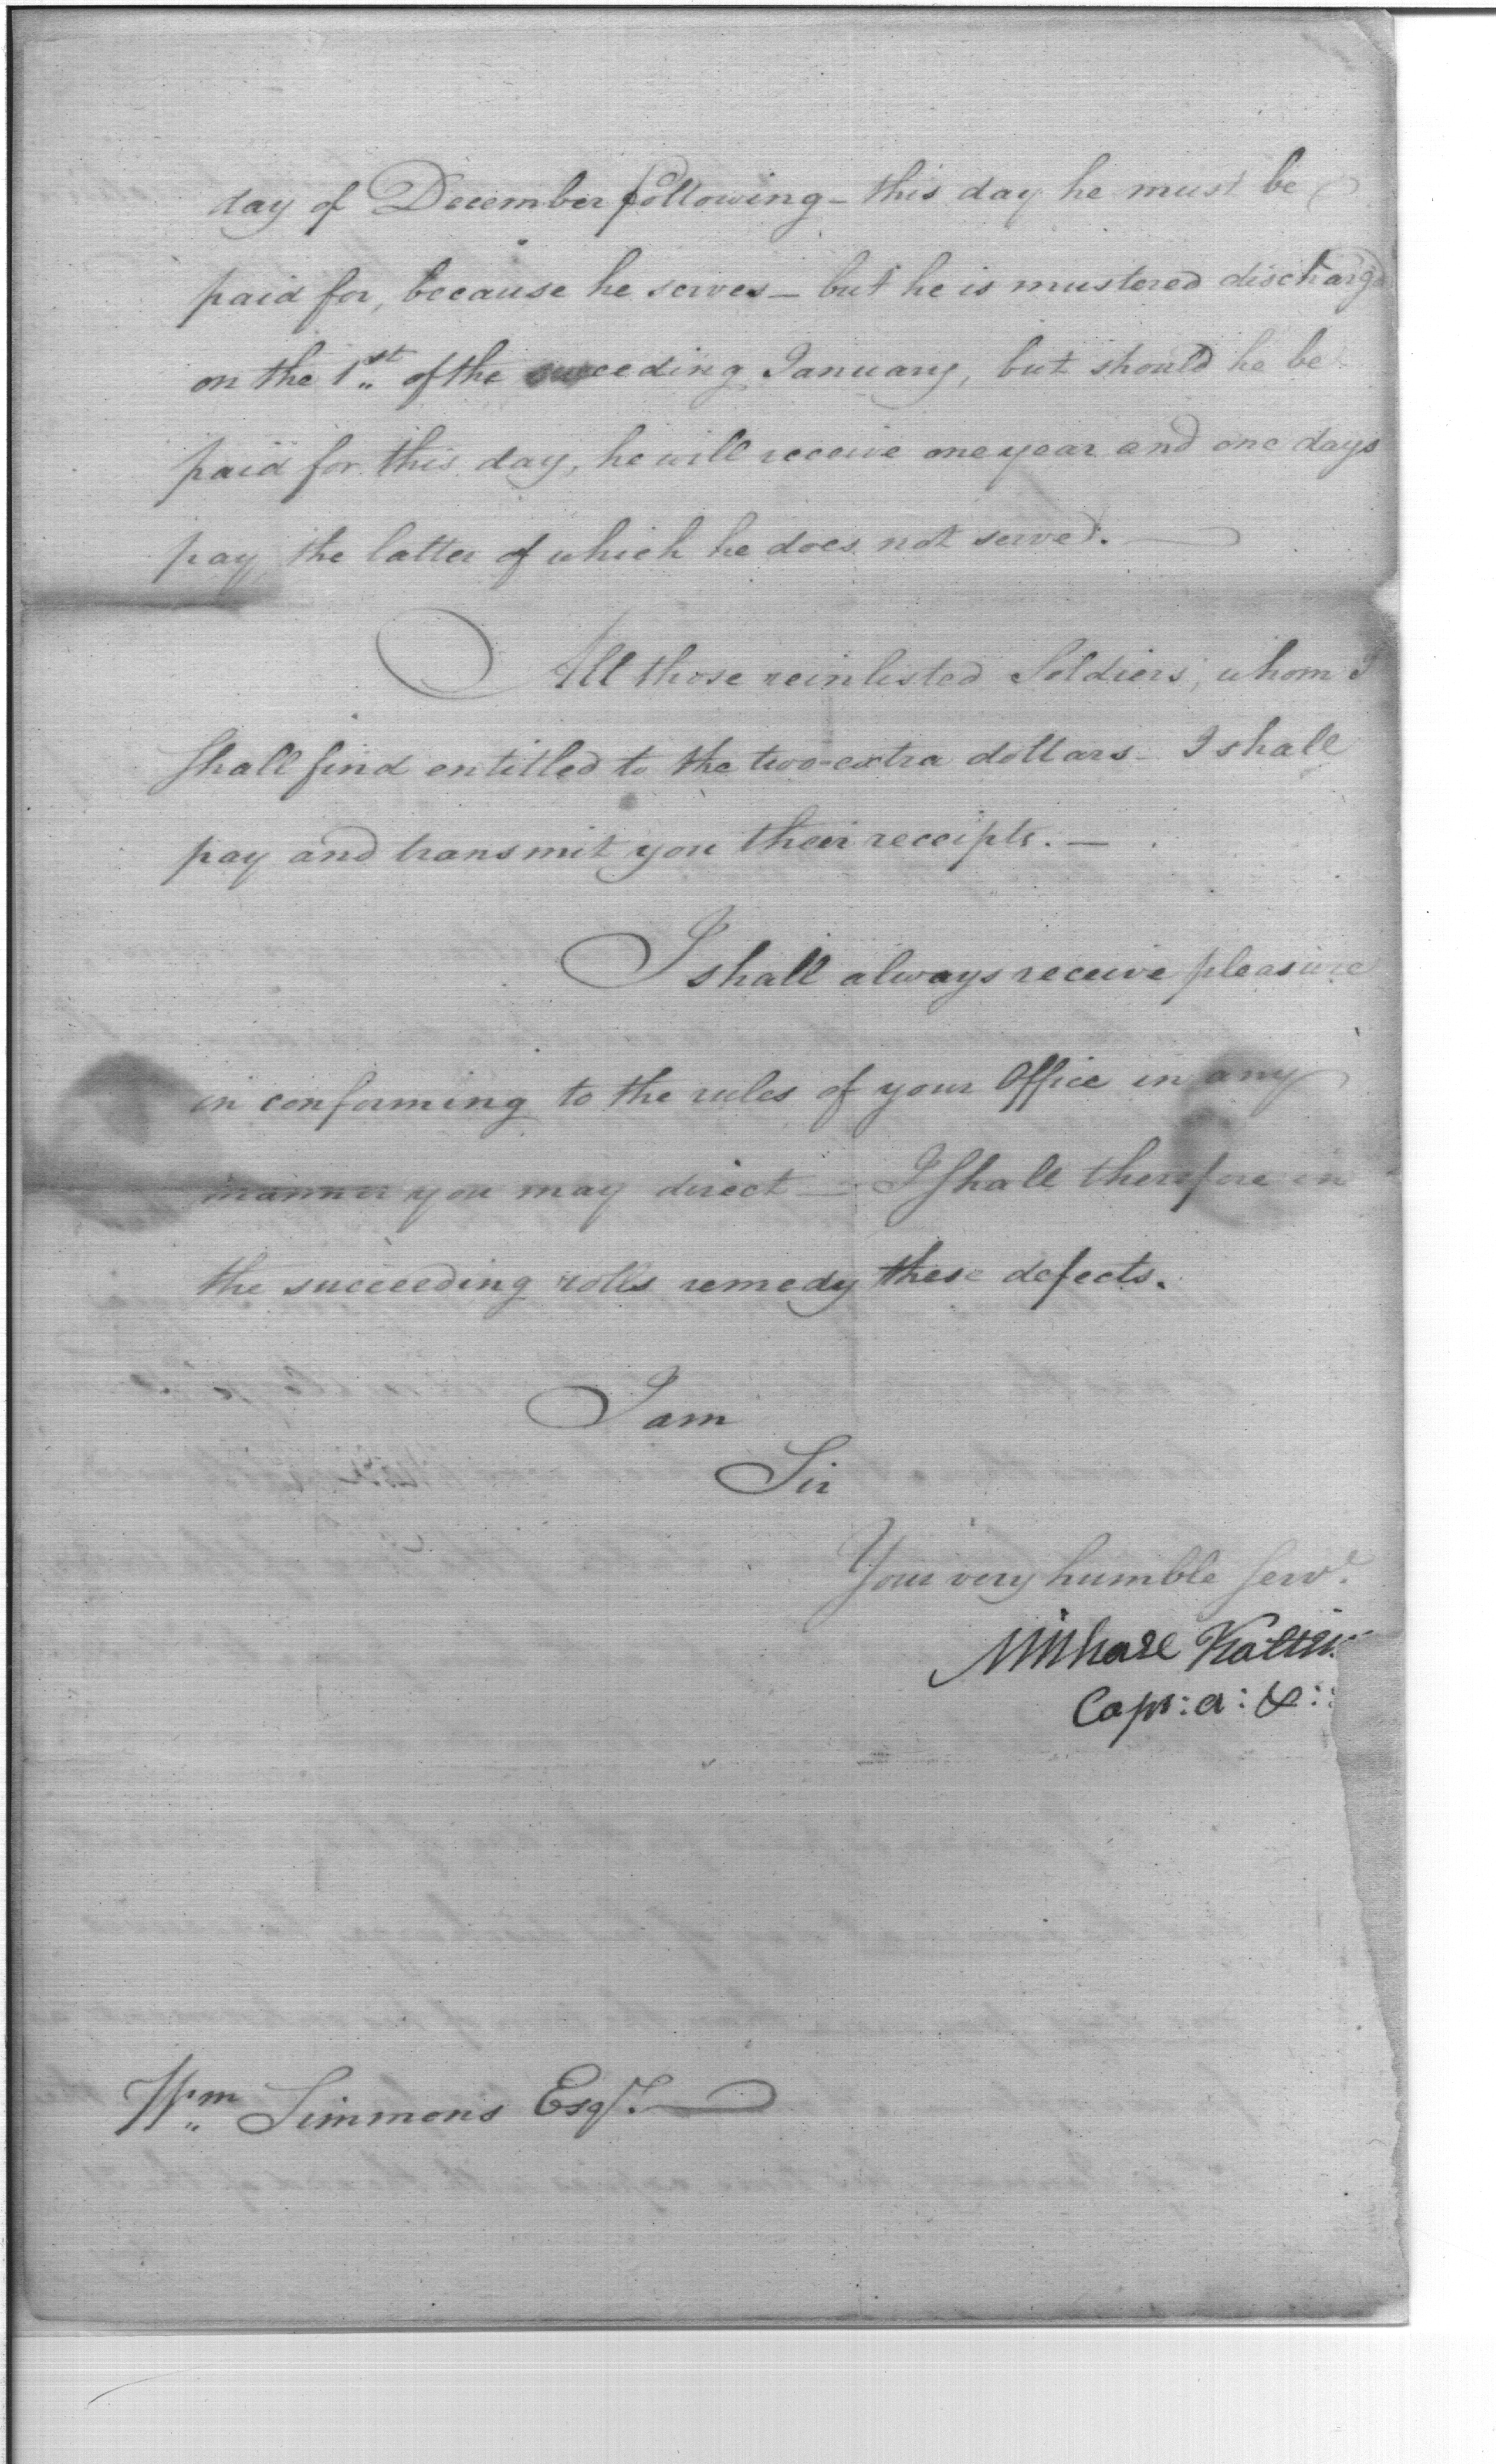 day of December following - this day he must be
paid for, because he serves - but he is mustered discharg
on the 1st of the succeeding January, but should he be
paid for this day, he will receive one year and one days
pay the latter of which he does not serve.
All those reinlisted Soldiers, whom I
shall find entitled to the two extra dollars - I shall
pay and transmit you their receipts. -
I shall always receive pleasure
in conforming to the rules of your Office in any
manner you may direct - I shall therefore in
the succeeding rolls remedy these defects.
I am
Sir
Your very humble Servt.
Michael
Wm Simmons Esqr.